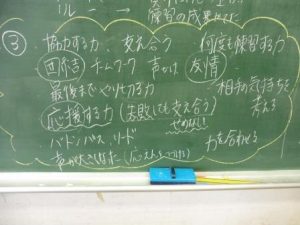 練習の成果
③ 協力する力 支え合う 何度も練習する力
団結 チームワーク 声かけ 友情
最後までやりとげる力 相手の気持ちを考える
応援する力(失敗しても支え合う)
せめない!
バトンパス、リード 力を合わせる
声が大きくなった(応えんをつづけた)